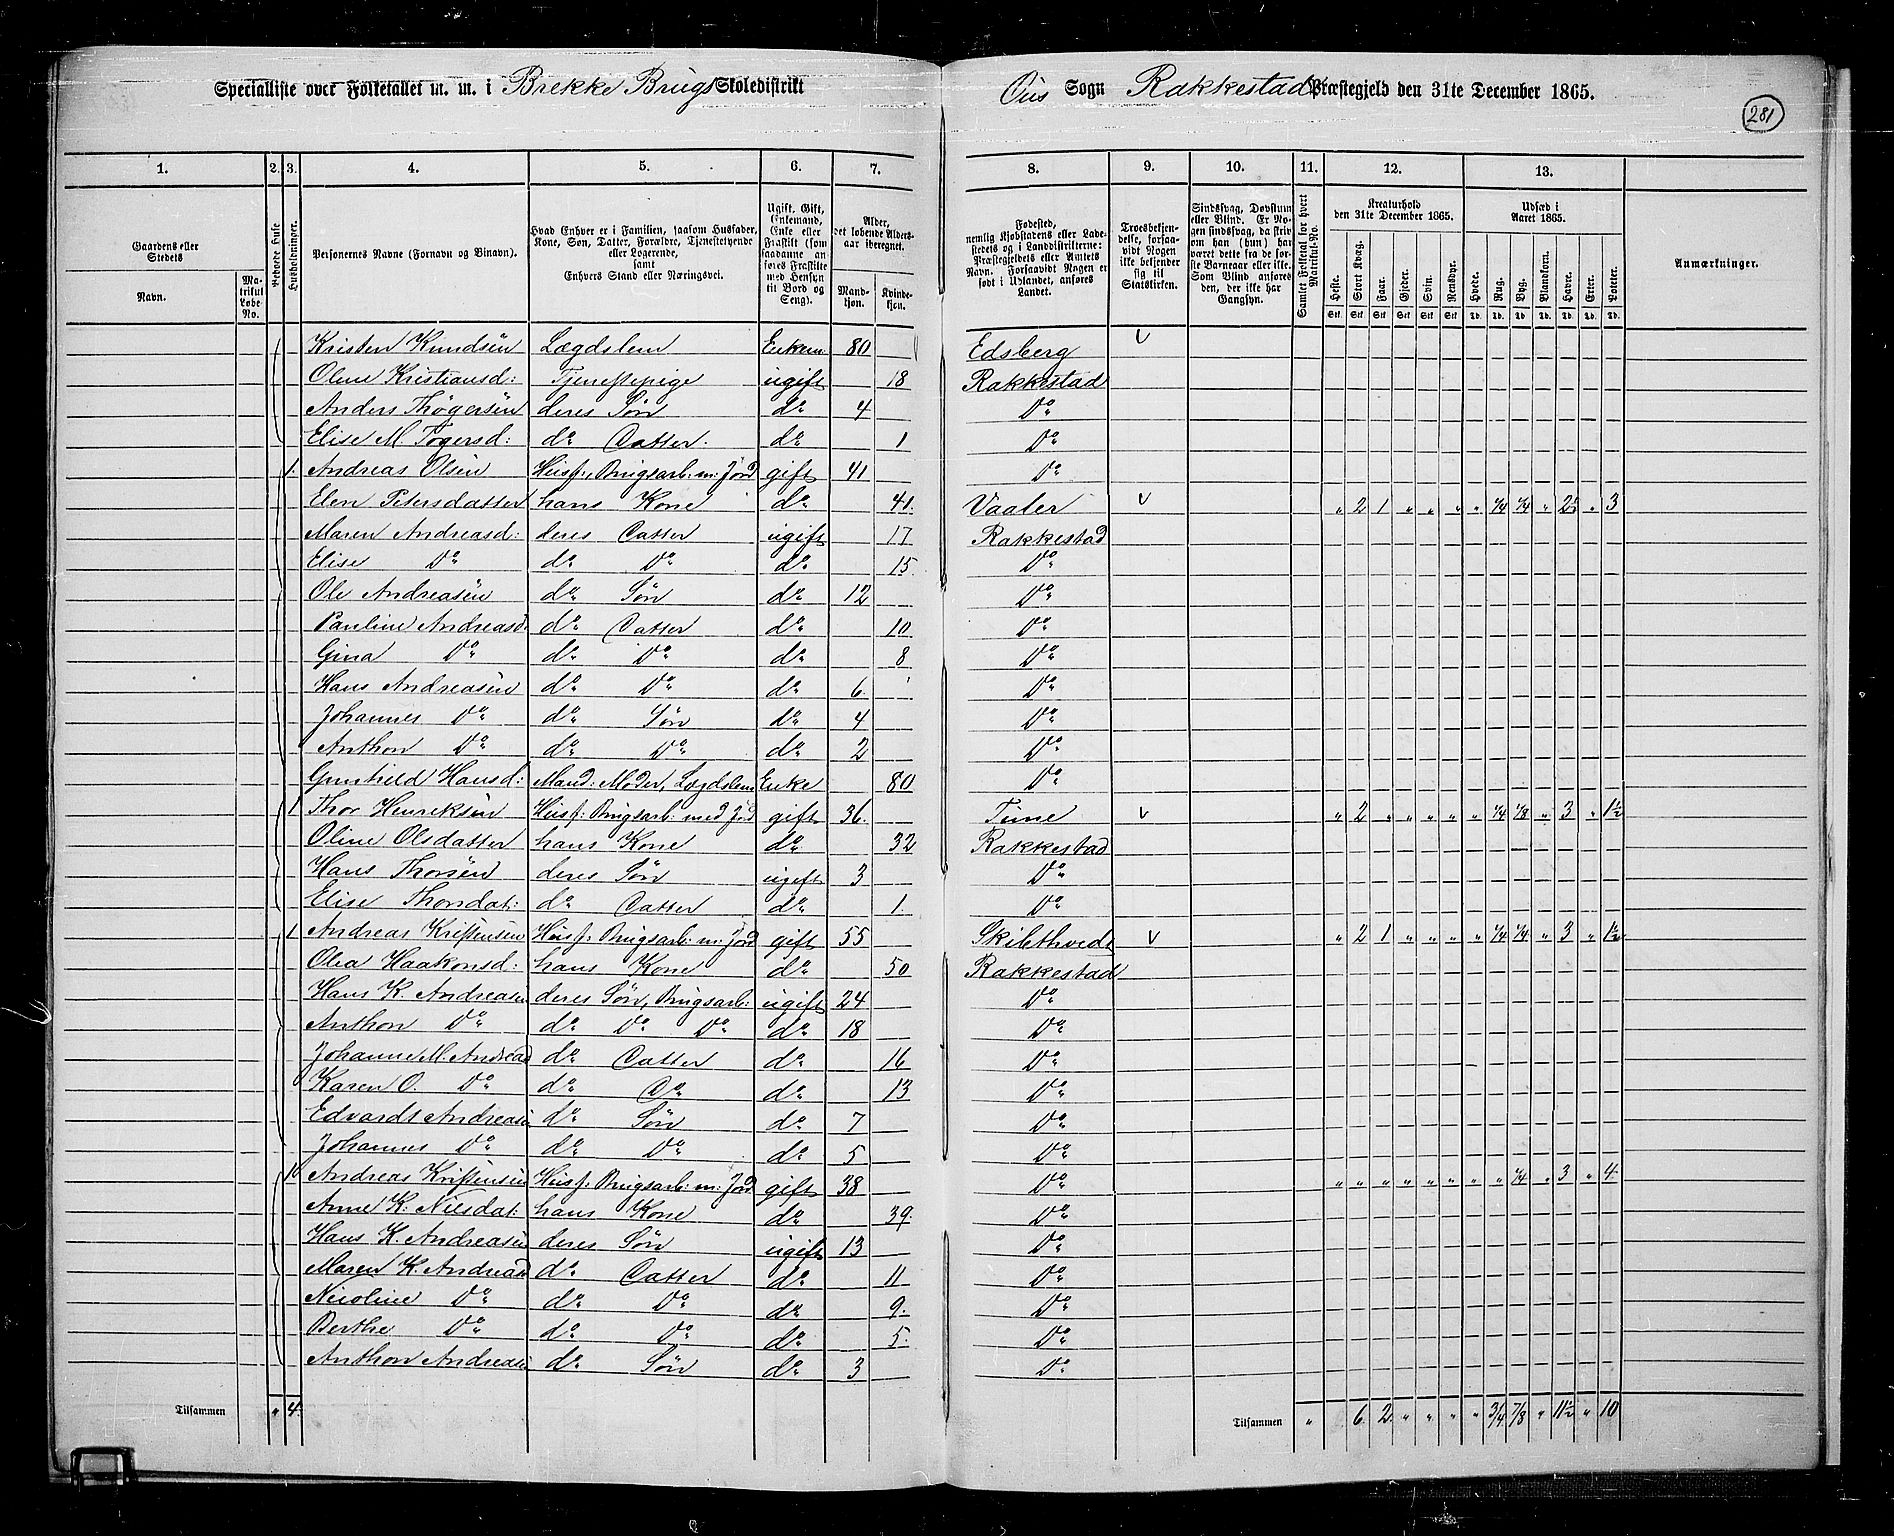 Specialliste over Folketallet m. m. i Brekke Brugs Skoledistrikt Ous Sogn Rakkestads Præstegjeld den 31te December 1865.
281
1. 2. 3. 4. 5. 6. 7. 8. 9. 10. 11. 12. 13.
Gaardens eller Stedets
Navn.
Matrikul Løbe-No.
Beboede Huse
Husholdninger.
Personernes Navne (Fornavn og Binavn).
Hvad Enhver er i Familien, saasom Husfader, Kone, Søn, Datter, Forældre, Tjenestetyende eller Logerende, samt Enhvers Stand eller Næringsvei.
Ugift, Gift, Enkemand, Enke eller Fraskilt (som saadanne anføres Fraskilte med Hensyn til Bord og Seng).
Alder, det løbende Aldersaar iberegnet.
Mandkjøn. Kvindekjøn.
Fødested, nemlig Kjøbstadens eller Ladestedets og i Landdistrikterne: Præstegjeldets eller Amtets Navn. Forsaavidt Nogen er født i Udlandet, anføres Landet.
Troesbekjendelse, forsaavidt Nogen ikke bekjender sig til Statskirken.
Sindssvag, Døvstum eller Blind. Er Nogen sindssvag, da skriv om han (hun) har været dette fra de første Barneaar eller ikke. Som Blind anføres den, der ikke har Gangsyn.
Samlet Folketal for hvert Matrikul-No.
Kreaturhold den 31te December 1865.
Heste. Stort Kvæg. Faar. Gjeder. Svin. Rensdyr.
Udsæd i Aaret 1865.
Hvede. Rug. Byg. Blandkorn. Havre. Erter. Poteter.
Stk. Stk. Stk. Stk. Stk. Stk. Td. Td. Td. Td. Td. Td. Td.
Anmærkninger.
Kristen Knudsen Lægdslem Enkem. 80 Edsberg v
Oline Kristiansd: Tjenestepige ugift 18 Rakkestad
Anders Thøgersen deres Søn do 4 Do
Elise M. Tøgersd: do Datter. do 1 Do
1. Andreas Olsen Husf:, Brugsarb: m: Jord gift 41 Do
Elen Petersdatter hans Kone do 41. Vaaler v " 2 1 " " " " 1/4 1/4 " 2½ " 3
Maren Andreasd: deres Datter ugift 17 Rakkestad
Elise Do do Do do 15. Do
Ole Andreasen do Søn do 12 Do
Pauline Andreasd: do Datter do 10 Do
Gina Do do Do do 8 Do
Hans Andreasen do Do do 6. Do
Johannes Do do Søn do 4 Do
Anthon Do do Do do 2 Do
Gunhild Hansd: Mand: Moder, Lægdslem Enke 80 Do
1 Thor Henriksen Husf: Brugsarb: med Jord gift 36. Tune v " 2 " " " " " 1/4 1/8 " 3 " 1½
Oline Olsdatter hans Kone do 32 Rakkestad
Hans Thorsen deres Søn ugift 3 Do
Elise Thorsdat: do Datter do 1. Do
1 Andreas Kristensen Husf: Brugsarb: m: Jord gift 55 Skibthvedt v " 2 1 " " " " 1/4 1/4 " 3 " 1½
Olea Haakonsd: hans Kone do 50 Rakkestad
Hans K. Andreasen deres Søn, Brugsarb: ugift 24 Do
Anthon Do do Do Do do 18 Do
Johanne M. Andreasd do Datter do 16 Do
Karen O. Do do Do do 13 Do
Edvardt Andreasen do Søn do 7 Do
Johannes Do do Do do 5 Do
1 Andreas Kristensen Husf: Brugsarb: m: Jord gift 38 Do " " " " " " " " 1/4 " 3 " 4.
Anne K: Nilsdat: hans Kone do 39. Do
Hans K. Andreasen deres Søn ugift 13 Do
Maren K. Andreasd do Datter do 11 Do
Nicoline Do do Do do 9. Do
Berthe Do do Do do 5. Do
Anthon Andreasen do Søn do 3 Do
Tilsammen " 4. Tilsammen " 6. 2. " " " " 3/4 7/8 " 11½ " 10